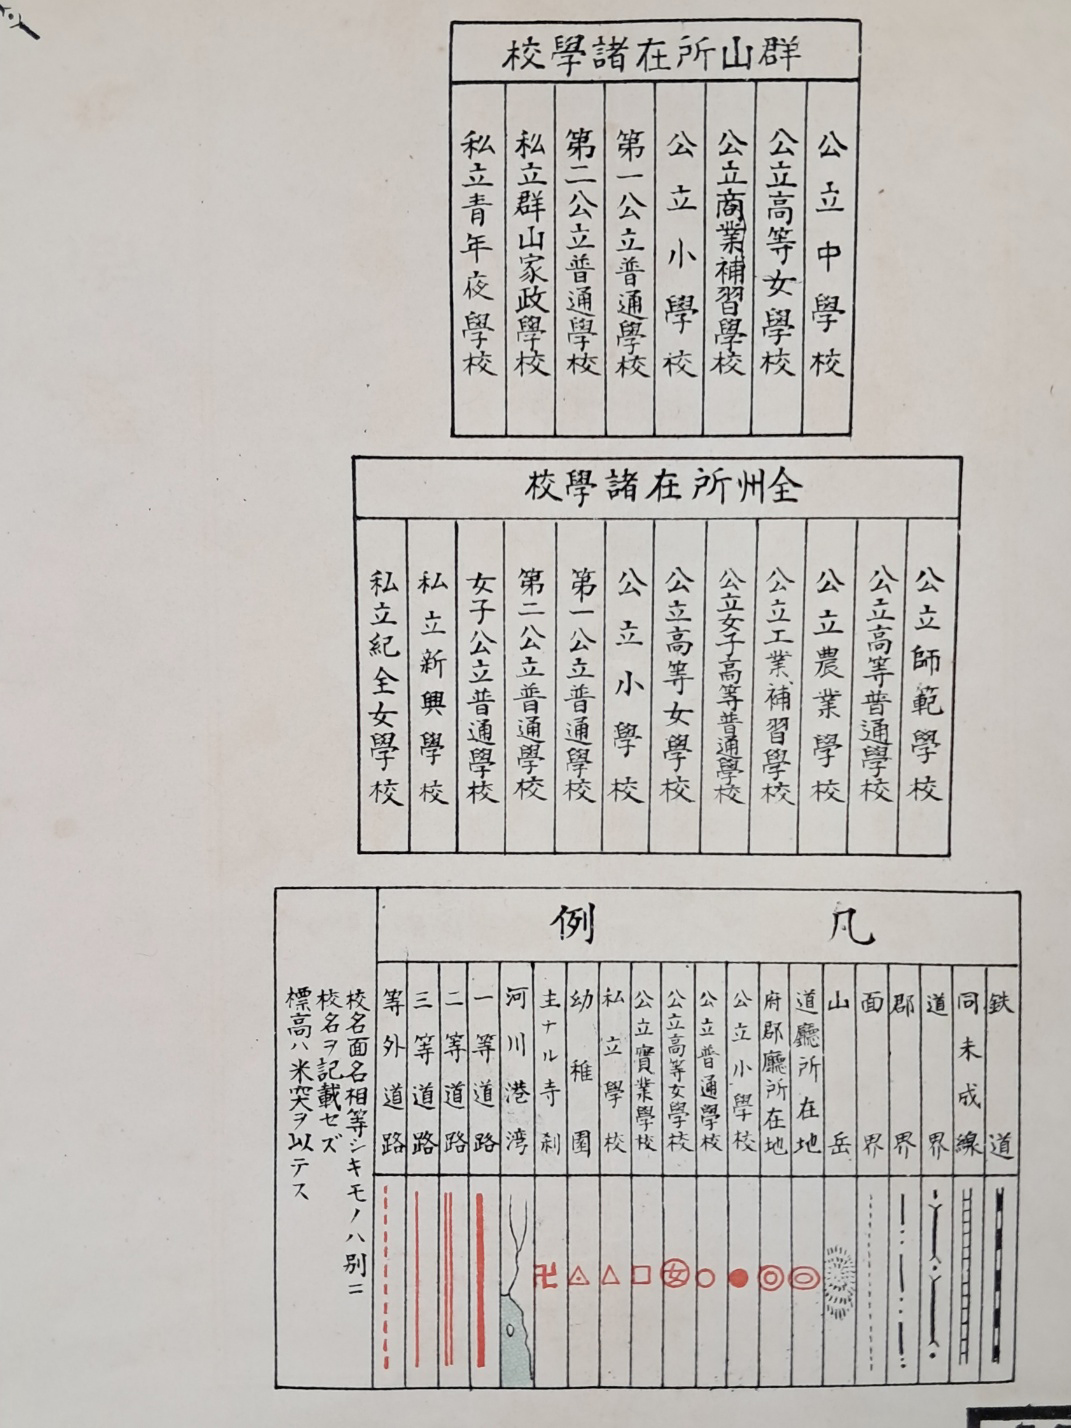 群山所在諸學校
公立中學校
公立高等女學校
公立商業補習學校
公立小學校
第一公立普通學校
第二公立普通學校
私立群山家政學校
私立青年夜學校
全州所在諸學校
公立師範學校
公立高等普通學校
公立農業學校
公立工業補習學校
公立女子高等普通學校
公立高等女學校
公立小學校
第一公立普通學校
第二公立普通學校
女子公立普通學校
私立新興學校
私立紀全女學校
凡例
鉄道
同未成線
道界
郡界
面界
山岳
道廳所在地
府郡廳所在地
公立小學校
公立普通學校
公立高等女學校
女
公立實業學校
私立學校
幼稚園
主ナル寺刹
卍
河川港湾
一等道路
二等道路
三等道路
等外道路
校名面名相等シキモノハ別ニ
校名ヲ記載セズ
標高ハ米突ヲ以テス